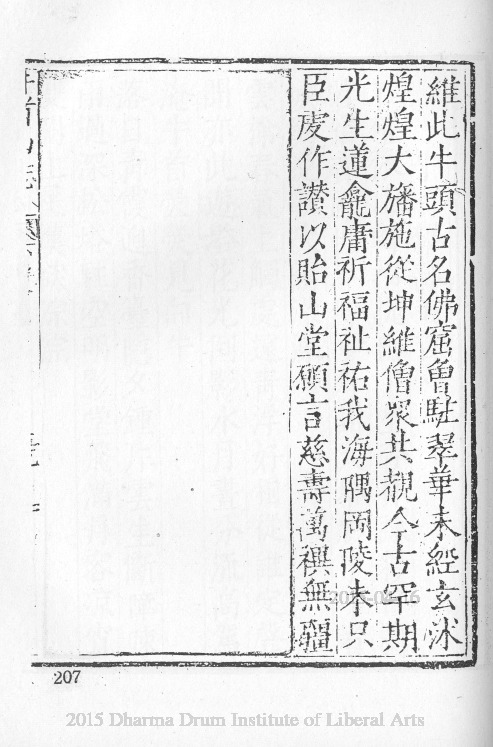 維此牛頭古名佛窟曾駐翠華未經玄沭
煌煌大旛施從坤維僧衆共覩今古罕期
光生蓮龕庸祈福祉祐我海隅岡陵未只
臣虔作讃以貽山堂願言慈壽萬禩無疆
207
2015 Dharma Drum Institute of Liberal Arts